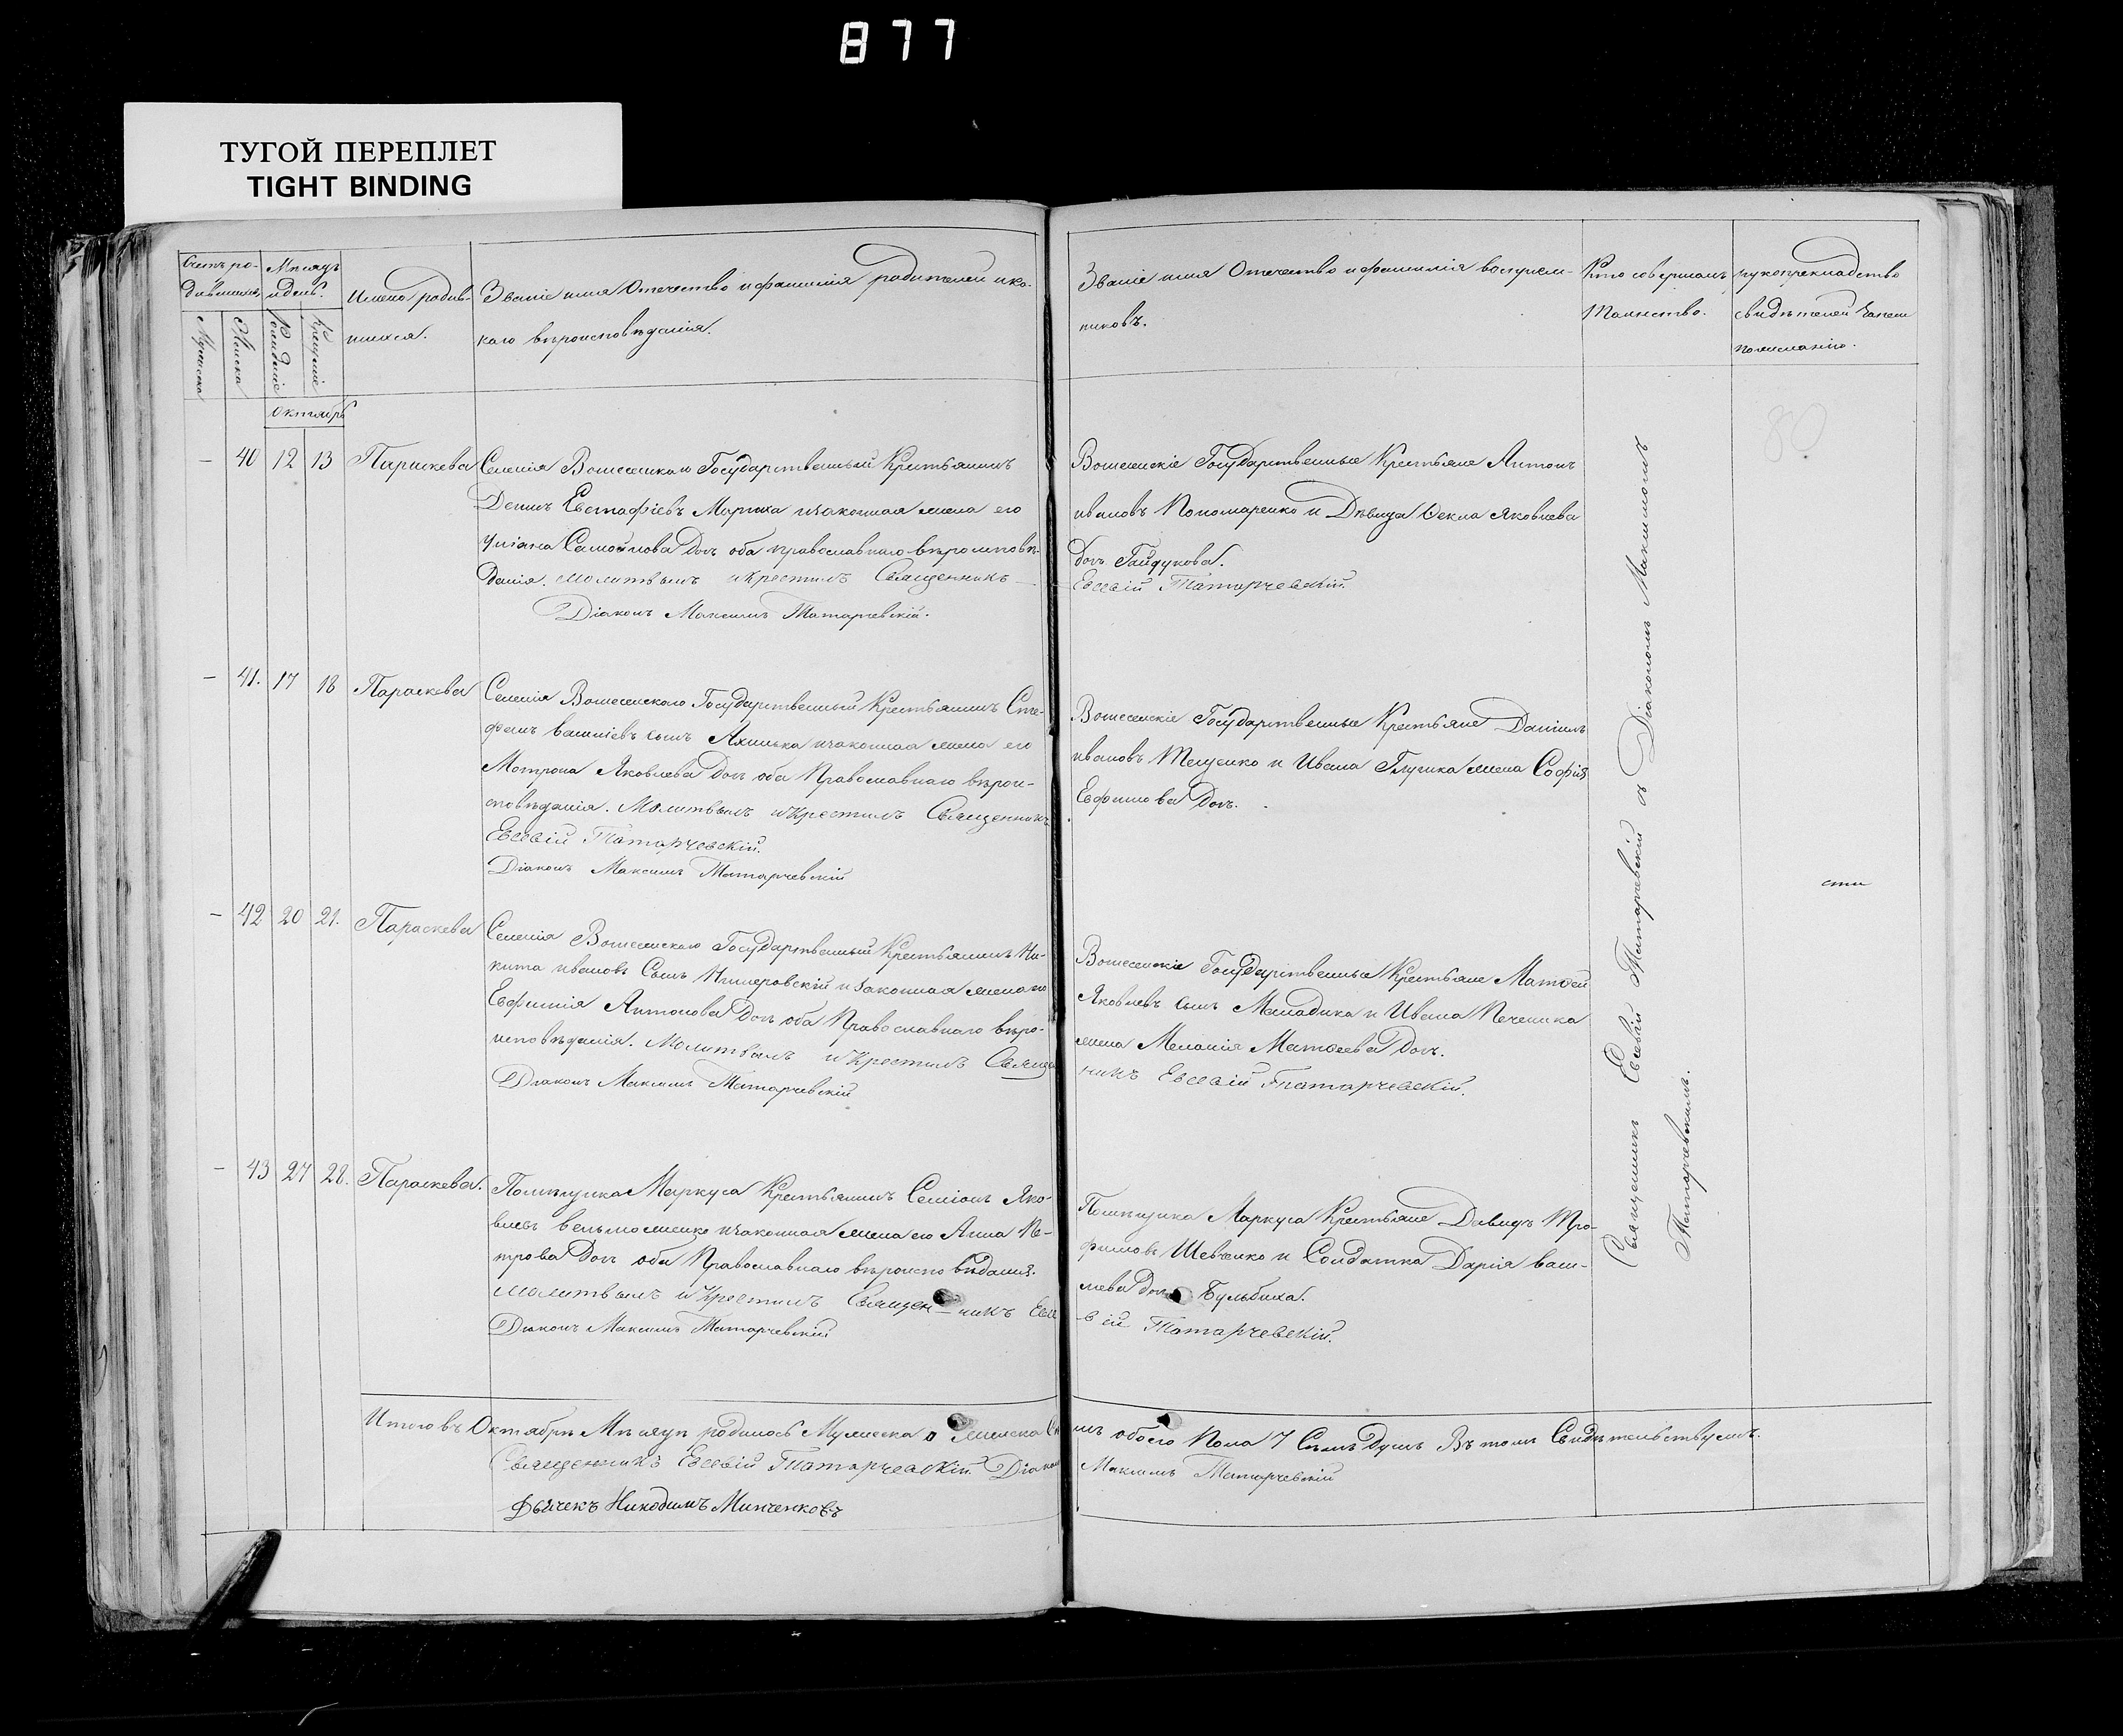 877
ТУГОЙ ПЕРЕПЛЕТ
TIGHT BINDING
Счетъ ро-
дившихся
Мѣсяцъ
и день.
Мужеска
Женска
Рожденіе
Крещеніе
Имена родив-
шихся.
Званіе имя Отечество и фамилія родителей и ка-
каго вѣроисповѣданія.
Званіе имя Отечество и фамилія воспріем-
никовъ.
Кто совершалъ
Таинство.
рукоприкладство
свидѣтелей записи
по желанію.
Октябрь
80
— 40 12 13 Параскева
Селенія Вознесенскаго Государственный Крестьянинъ
Денис Евстафіевъ и законная жена его
Уліяна Самойлова Дочь оба православнаго вѣроисповѣ-
данія. Молитвовалъ и Крестилъ Священникъ
Діаконъ Максимъ Татарчевскій.
Вознесенскіе Государственные Крестьяне Антонъ
ивановъ Пономаренко и Дѣвица Ѳекла Яковлева
дочь Гайдукова.
Евсевій Татарчевскій.
— 41. 17 18 Параскева
Селенія Вознесенскаго Государственный Крестьянинъ Сте-
фанъ сынъ и законная жена его
Матрона Яковлева Дочь оба Православнаго вѣрои-
сповѣданія. Молитвовалъ и Крестилъ Священникъ
Евсевій Татарчевскій.
Діаконъ Максимъ Татарчевскій
Вознесенскіе Государственные Крестьяне Даніилъ
ивановъ и Ивана жена Софія
Евфимова Дочь.
— 42 20 21. Параскева
Селенія Вознесенскаго Государственный Крестьянинъ Ни-
кита ивановъ Сынъ и законная жена его
Евфимія Антонова Дочь оба Православнаго вѣро-
исповѣданія. Молитвовалъ и Крестилъ Священ
Діаконъ Максимъ Татарчевскій
Вознесенскіе Государственные Крестьяне Матѳей
Яковлевъ сынъ и Ивана
жена Меланія Матѳеева Дочь.
никъ Евсевій Татарчевскій.
сти
— 43 27 28. Параскева.
Помѣщика Маркуса Крестьянинъ Семіонъ Яко-
влевъ и законная жена его Анна Пе-
трова Дочь оба Православнаго вѣроисповѣданія.
Молитвовалъ и Крестилъ Священ—никъ Евсе
Діаконъ Максимъ Татарчевскій
Помѣщика Маркуса Крестьяне Давидъ Тро-
фимовъ Шевченко и Солдатка Дарія васи-
лева дочь Бульбиха.
-вій Татарчевскій.
Священникъ Евсевій Татарчевскій съ Діакономъ Максимомъ
Татарчевскимъ.
Итого въ Октябрѣ Мѣсяцѣ родилось Мужеска Женска
обоего Пола 7 Семь Душъ Въ томъ Свидѣтельствуемъ.
Священникъ Евсевій Татарчевскій Діаконъ
Максимъ Татарчевскій
Дьячекъ Никодимъ Минченковъ